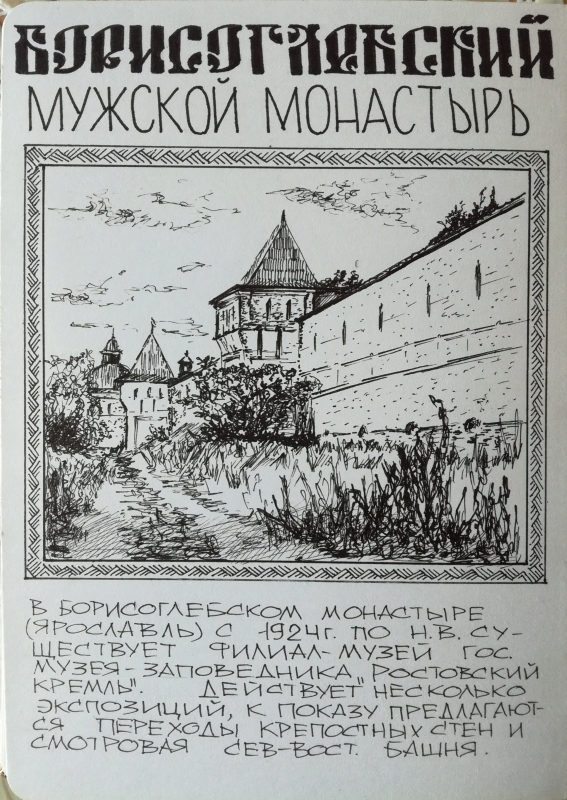 БОРИСОГЛЕБСКИЙ
МУЖСКОЙ МОНАСТЫРЬ
В БОРИСОГЛЕБСКОМ МОНАСТЫРЕ
(ЯРОСЛАВЛЬ) С 1924г. ПО Н.В. СУ-
ЩЕСТВУЕТ ФИЛИАЛ-МУЗЕЙ ГОС.
МУЗЕЯ-ЗАПОВЕДНИКА „РОСТОВСКИЙ
КРЕМЛЬ". ДЕЙСТВУЕТ НЕСКОЛЬКО
ЭКСПОЗИЦИЙ, К ПОКАЗУ ПРЕДЛАГАЮТ-
СЯ ПЕРЕХОДЫ КРЕПОСТНЫХ СТЕН И
СМОТРОВАЯ СЕВ-ВОСТ. БАШНЯ.